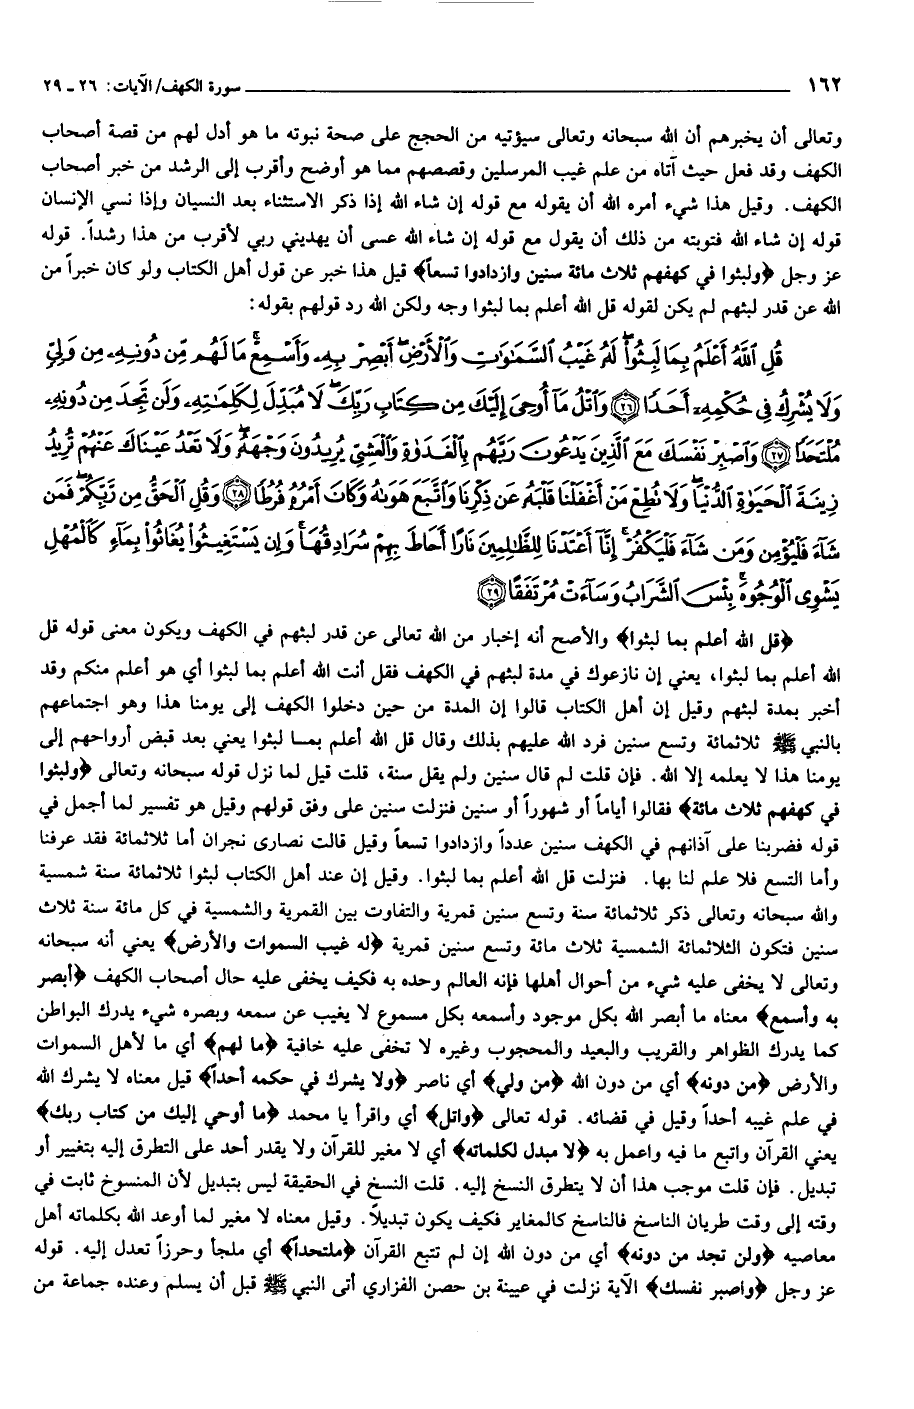 ١٦٢ سورة الكهف/ الآيات: ٢٦ ـ ٢٩
وتعالى أن يخبرهم أن الله سبحانه وتعالى سيؤتيه من الحجج على صحة نبوته ما هو أدل لهم من قصة أصحاب
الكهف وقد فعل حيث آتاه من علم غيب المرسلين وقصصهم مما هو أوضح وأقرب إلى الرشد من خبر أصحاب
الكهف. وقيل هذا شيء أمره الله أن يقوله مع قوله إن شاء الله إذا ذكر الاستثناء بعد النسيان وإذا نسي الإنسان
قوله إن شاء الله فتوبته من ذلك أن يقول مع قوله إن شاء الله عسى أن يهديني ربي لأقرب من هذا رشداً. قوله
عز وجل ﴿ولبثوا في كهفهم ثلاث مائة سنين وازدادوا تسعاً﴾ قيل هذا خبر عن قول أهل الكتاب ولو كان خبراً من
الله عن قدر لبثهم لم يكن لقوله قل الله أعلم بما لبثوا وجه ولكن الله رد قولهم بقوله:
قُلِ ٱللَّهُ أَعْلَمُ بِمَا لَبِثُوا۟ ۖ لَهُۥ غَيْبُ ٱلسَّمَـٰوَٰتِ وَٱلْأَرْضِ ۖ أَبْصِرْ بِهِۦ وَأَسْمِعْ ۚ مَا لَهُم مِّن دُونِهِۦ مِن وَلِىٍّ
وَلَا يُشْرِكُ فِى حُكْمِهِۦٓ أَحَدًا ﴿٢٦﴾ وَٱتْلُ مَآ أُوحِىَ إِلَيْكَ مِن كِتَابِ رَبِّكَ ۖ لَا مُبَدِّلَ لِكَلِمَـٰتِهِۦ وَلَن تَجِدَ مِن دُونِهِۦ
مُلْتَحَدًا ﴿٢٧﴾ وَٱصْبِرْ نَفْسَكَ مَعَ ٱلَّذِينَ يَدْعُونَ رَبَّهُم بِٱلْغَدَوٰةِ وَٱلْعَشِىِّ يُرِيدُونَ وَجْهَهُۥ ۖ وَلَا تَعْدُ عَيْنَاكَ عَنْهُمْ تُرِيدُ
زِينَةَ ٱلْحَيَوٰةِ ٱلدُّنْيَا ۖ وَلَا تُطِعْ مَنْ أَغْفَلْنَا قَلْبَهُۥ عَن ذِكْرِنَا وَٱتَّبَعَ هَوَىٰهُ وَكَانَ أَمْرُهُۥ فُرُطًا ﴿٢٨﴾ وَقُلِ ٱلْحَقُّ مِن رَّبِّكُمْ ۖ فَمَن
شَآءَ فَلْيُؤْمِن وَمَن شَآءَ فَلْيَكْفُرْ ۚ إِنَّآ أَعْتَدْنَا لِلظَّـٰلِمِينَ نَارًا أَحَاطَ بِهِمْ سُرَادِقُهَا ۚ وَإِن يَسْتَغِيثُوا۟ يُغَاثُوا۟ بِمَآءٍ كَٱلْمُهْلِ
يَشْوِى ٱلْوُجُوهَ ۚ بِئْسَ ٱلشَّرَابُ وَسَآءَتْ مُرْتَفَقًا ﴿٢٩﴾
﴿قل الله أعلم بما لبثوا﴾ والأصح أنه إخبار من الله تعالى عن قدر لبثهم في الكهف ويكون معنى قوله قل
الله أعلم بما لبثوا، يعني إن نازعوك في مدة لبثهم في الكهف فقل أنت الله أعلم بما لبثوا أي هو أعلم منكم وقد
أخبر بمدة لبثهم وقيل إن أهل الكتاب قالوا إن المدة من حين دخلوا الكهف إلى يومنا هذا وهو اجتماعهم
بالنبي ﷺ ثلاثمائة وتسع سنين فرد الله عليهم بذلك وقال قل الله أعلم بمـا لبثوا يعني بعد قبض أرواحهم إلى
يومنا هذا لا يعلمه إلا الله. فإن قلت لم قال سنين ولم يقل سنة، قلت قيل لما نزل قوله سبحانه وتعالى ﴿ولبثوا
في كهفهم ثلاث مائة﴾ فقالوا أياماً أو شهوراً أو سنين فنزلت سنين على وفق قولهم وقيل هو تفسير لما أجمل في
قوله فضربنا على آذانهم في الكهف سنين عدداً وازدادوا تسعاً وقيل قالت نصارى نجران أما ثلاثمائة فقد عرفنا
وأما التسع فلا علم لنا بها. فنزلت قل الله أعلم بما لبثوا. وقيل إن عند أهل الكتاب لبثوا ثلاثمائة سنة شمسية
والله سبحانه وتعالى ذكر ثلاثمائة سنة وتسع سنين قمرية والتفاوت بين القمرية والشمسية في كل مائة سنة ثلاث
سنين فتكون الثلاثمائة الشمسية ثلاث مائة وتسع سنين قمرية ﴿له غيب السموات والأرض﴾ يعني أنه سبحانه
وتعالى لا يخفى عليه شيء من أحوال أهلها فإنه العالم وحده به فكيف يخفى عليه حال أصحاب الكهف ﴿أبصر
به وأسمع﴾ معناه ما أبصر الله بكل موجود وأسمعه بكل مسموع لا يغيب عن سمعه وبصره شيء يدرك البواطن
كما يدرك الظواهر والقريب والبعيد والمحجوب وغيره لا تخفى عليه خافية ﴿ما لهم﴾ أي ما لأهل السموات
والأرض ﴿من دونه﴾ أي من دون الله ﴿من ولي﴾ أي ناصر ﴿ولا يشرك في حكمه أحداً﴾ قيل معناه لا يشرك الله
في علم غيبه أحداً وقيل في قضائه. قوله تعالى ﴿واتل﴾ أي واقرأ يا محمد ﴿ما أوحي إليك من كتاب ربك﴾
يعني القرآن واتبع ما فيه واعمل به ﴿لا مبدل لكلماته﴾ أي لا مغير للقرآن ولا يقدر أحد على التطرق إليه بتغيير أو
تبديل. فإن قلت موجب هذا أن لا يتطرق النسخ إليه. قلت النسخ في الحقيقة ليس بتبديل لأن المنسوخ ثابت في
وقته إلى وقت طريان الناسخ فالناسخ كالمغاير فكيف يكون تبديلاً. وقيل معناه لا مغير لما أوعد الله بكلماته أهل
معاصيه ﴿ولن تجد من دونه﴾ أي من دون الله إن لم تتبع القرآن ﴿ملتحداً﴾ أي ملجأ وحرزاً تعدل إليه. قوله
عز وجل ﴿واصبر نفسك﴾ الآية نزلت في عيينة بن حصن الفزاري أتى النبي ﷺ قبل أن يسلم وعنده جماعة من